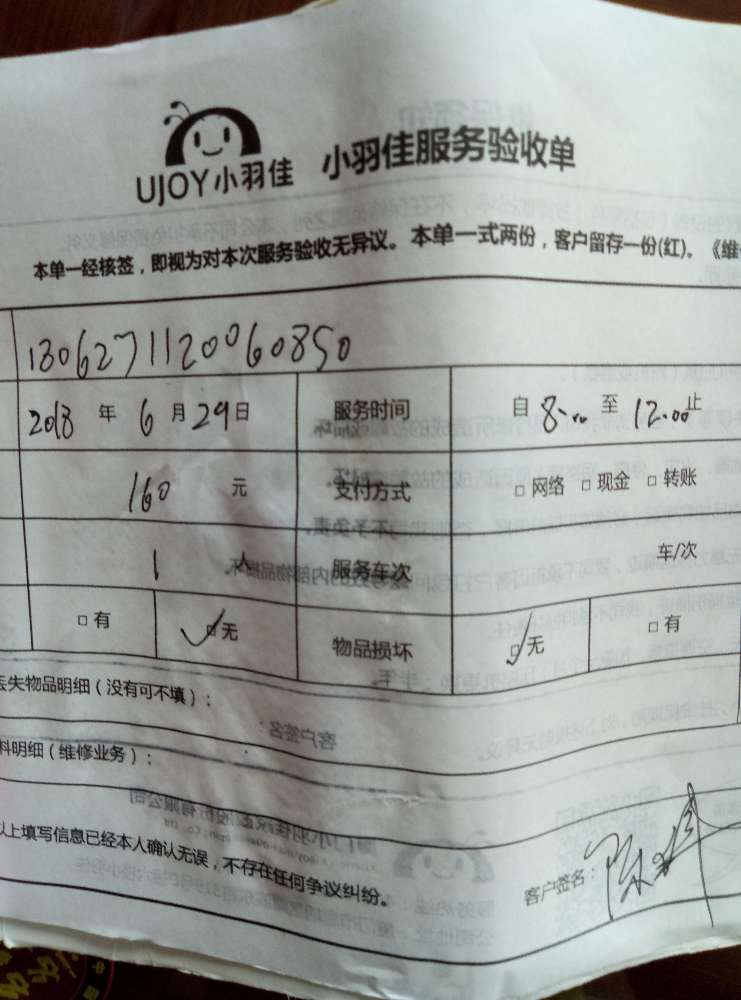 UJOY小羽佳 小羽佳服务验收单
本单一经核签，即视为对本次服务验收无异议。本单一式两份，客户留存一份(红)。《维
1306271120060850
2018 年 6 月 29 日 服务时间 自 8:00 至 12:00 止
160 元 支付方式 □ 网络 □ 现金 □ 转账
1 人 服务车次 车/次
□ 有 ✓□ 无 物品损坏 ✓□ 无 □ 有
丢失物品明细（没有可不填）：
料明细（维修业务）：
以上填写信息已经本人确认无误，不存在任何争议纠纷。
客户签名：